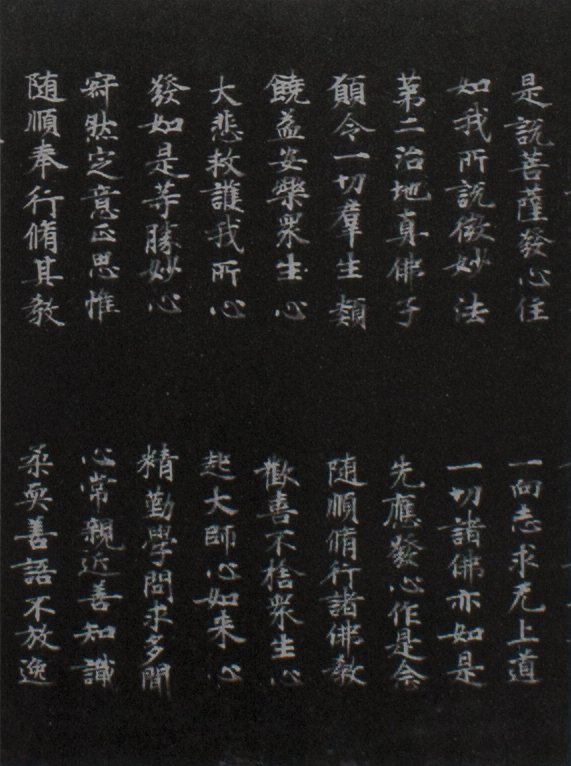 是說菩薩發心住　一向志求无上道
如我所說微妙法　一切諸佛亦如是
第二治地真佛子　先應發心作是念
願令一切羣生類　随順脩行諸佛教
饒益安樂衆生心　歡喜不捨衆生心
大悲救護我所心　起大師心如来心
發如是等勝妙心　精勤學問求多聞
寂然定意正思惟　心常親近善知識
随順奉行脩其教　柔耎善語不放逸